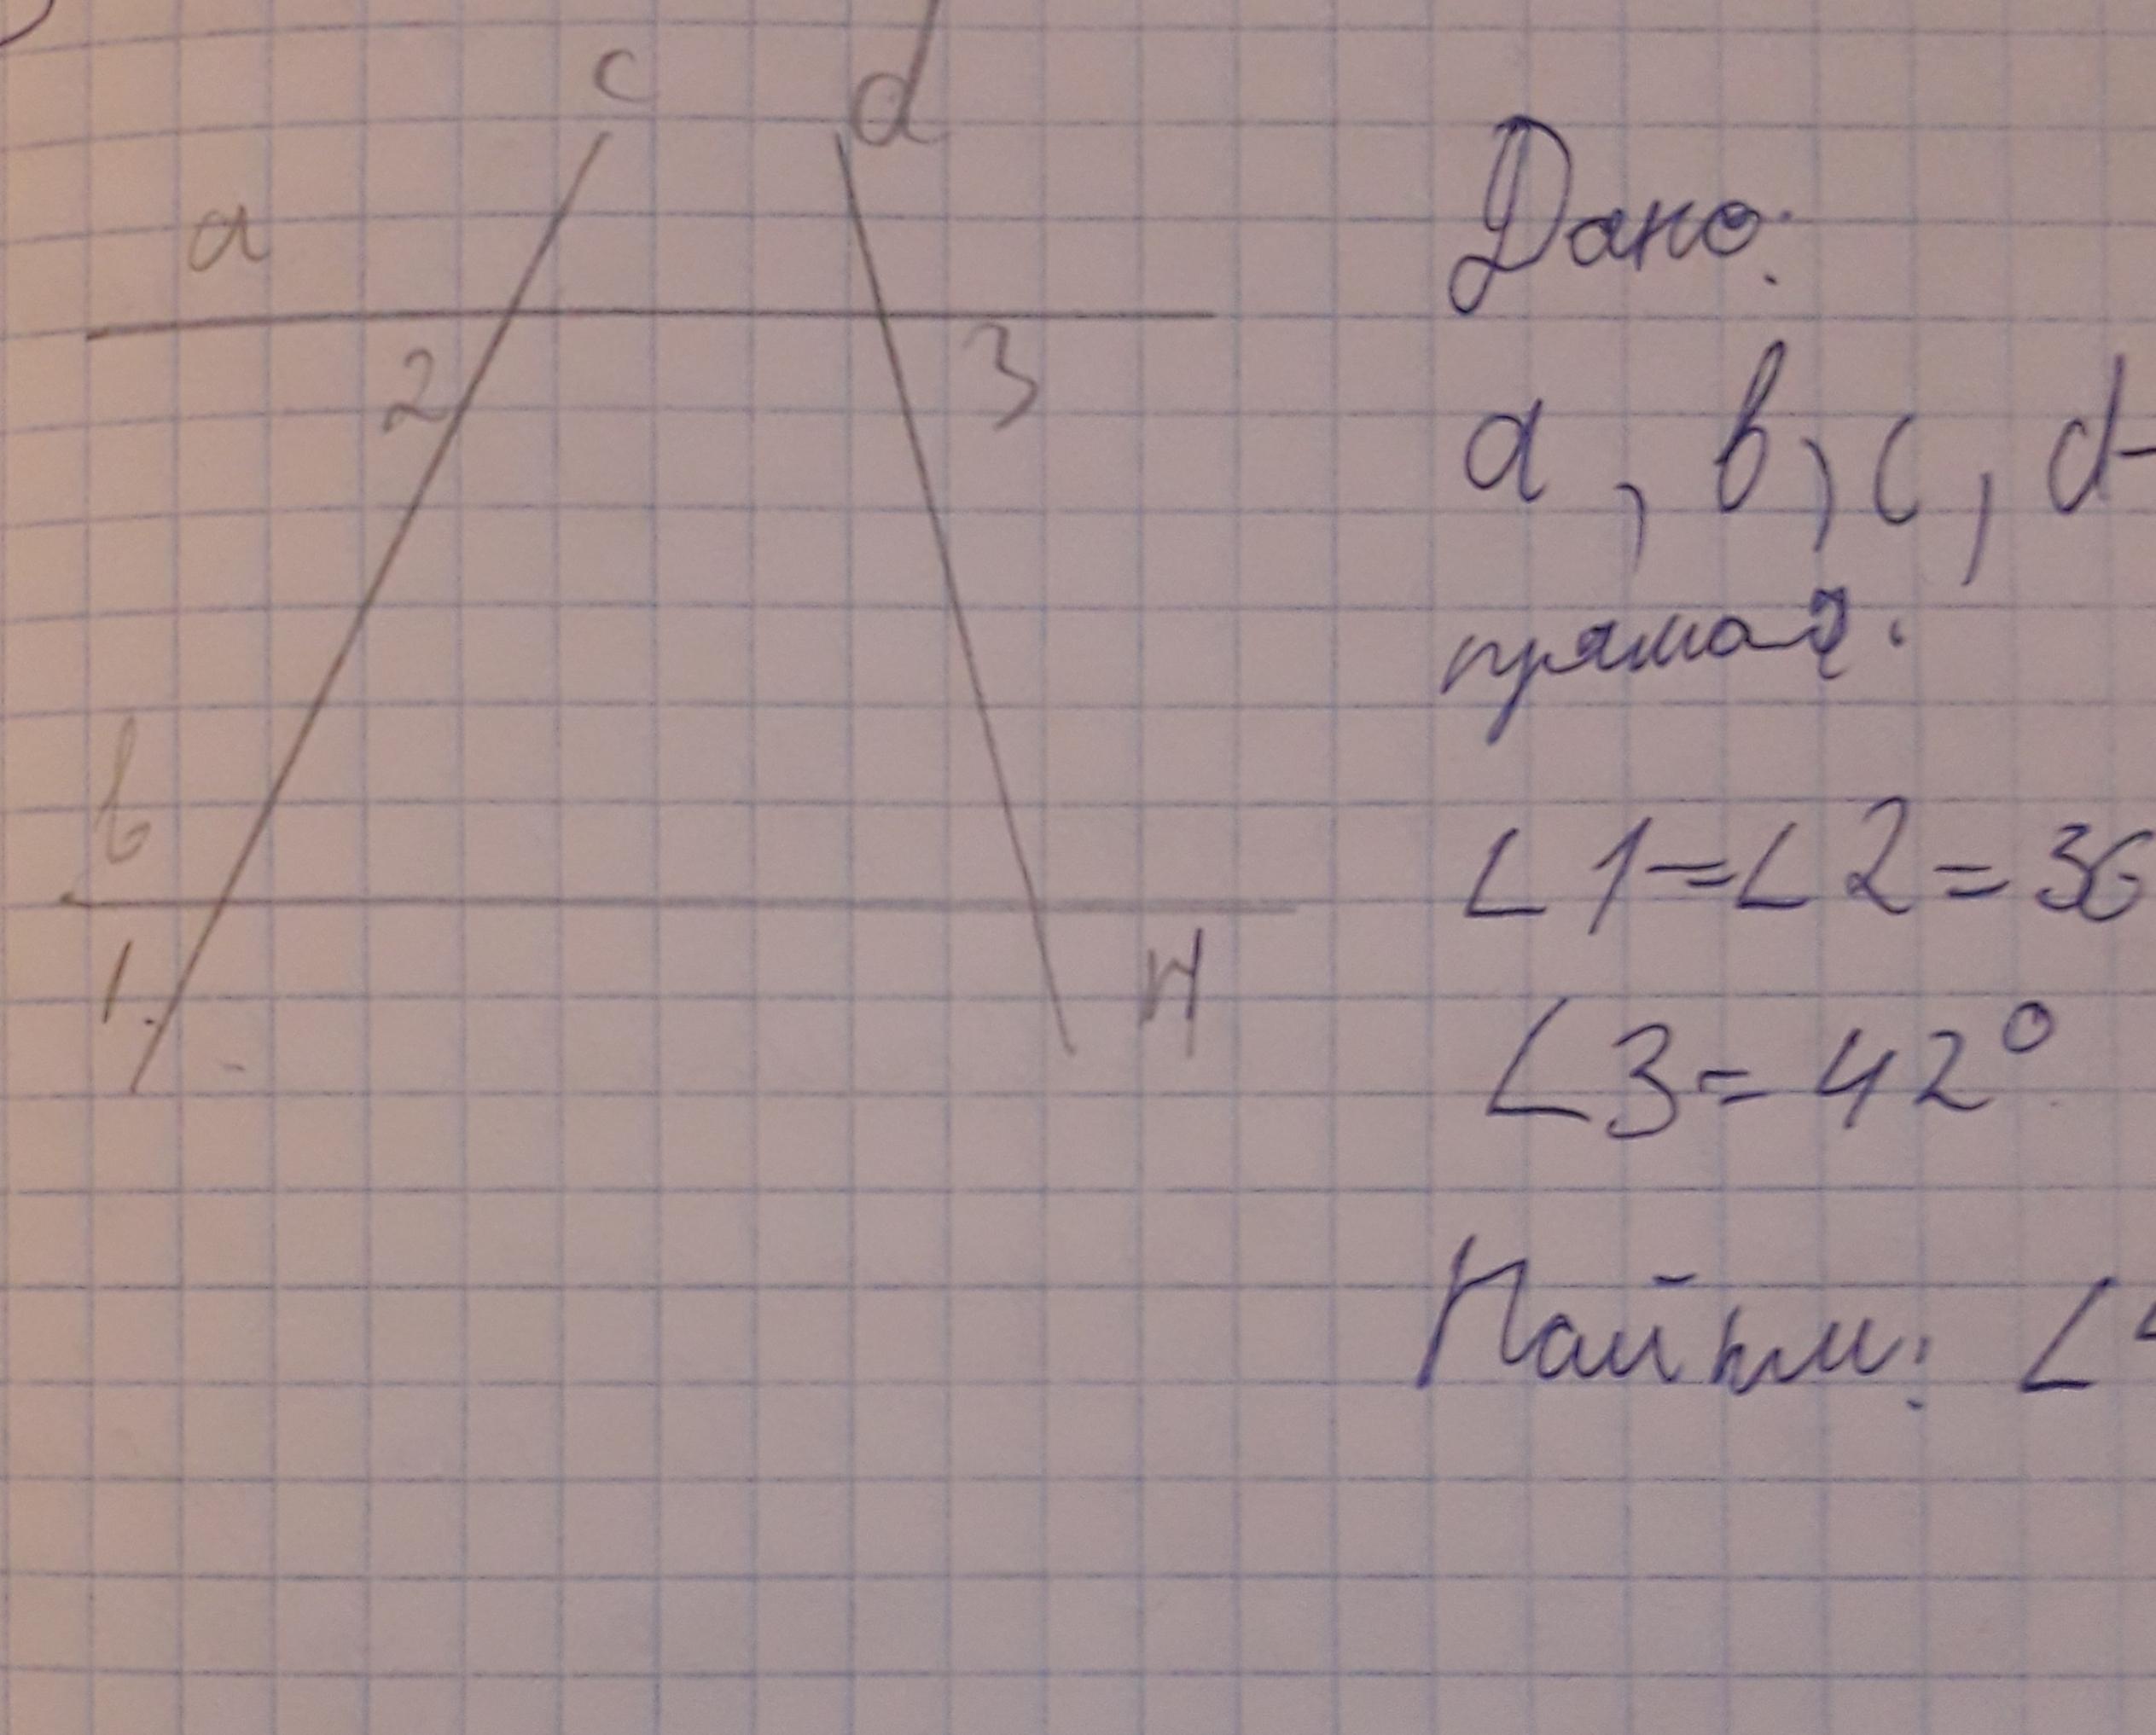 c d
a
2 3
b
1. 4
Дано:
a, b, c, d-
прямая.
∠1=∠2=36
∠3=42°
Найти: ∠4